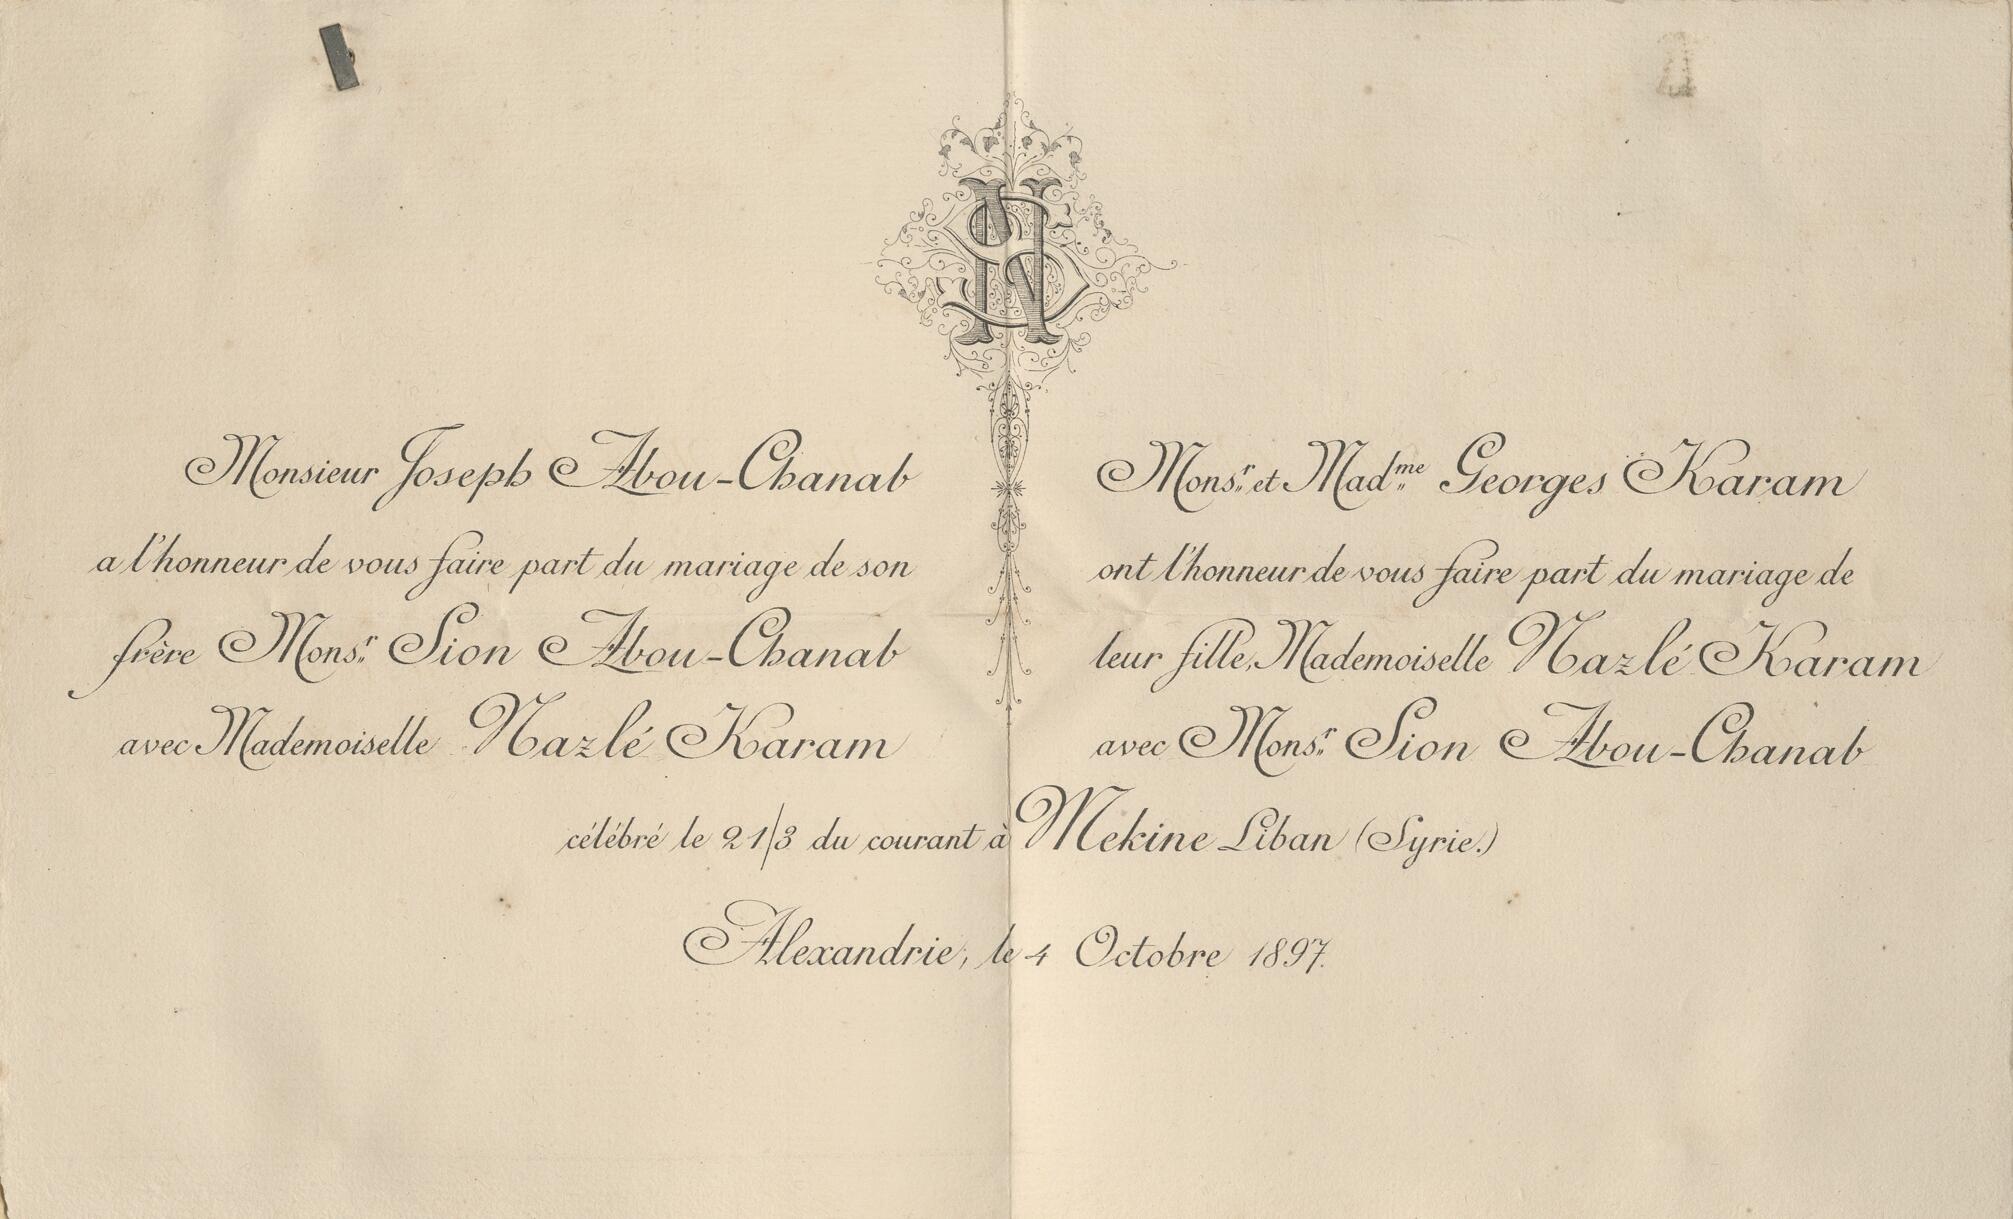 NS
Monsieur Joseph Abou-Chanab
a l'honneur de vous faire part du mariage de son
frère Monsr. Sion Abou-Chanab
avec Mademoiselle Nazlé Karam
Monsr. et Madme. Georges Karam
ont l'honneur de vous faire part du mariage de
leur fille, Mademoiselle Nazlé Karam
avec Monsr. Sion Abou-Chanab
célébré le 21/3 du courant à Mekine Liban (Syrie.)
Alexandrie, le 4 Octobre 1897.